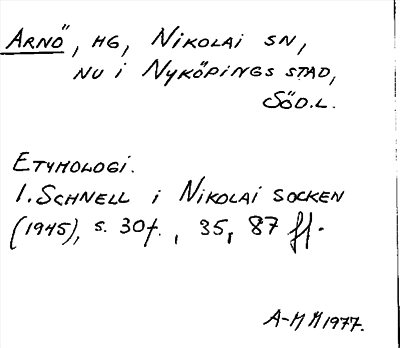 ARNÖ, HG, NIKOLAI SN,
NU I NYKÖPINGS STAD,
SÖD.L.
ETYMOLOGI.
I. SCHNELL i NIKOLAI SOCKEN
(1945), s. 30f., 35, 87 ff.
A-M M 1977.